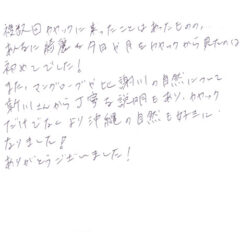 複数回カヤックに乗ったことはあったものの、
あんなに綺麗な夕日や月をカヤックから見たのは
初めてでした!
また、マングローブや比謝川の自然について
さんから丁寧な説明もあり、カヤック
だけでなくより沖縄の自然も好きに
なりました!
ありがとうございました!